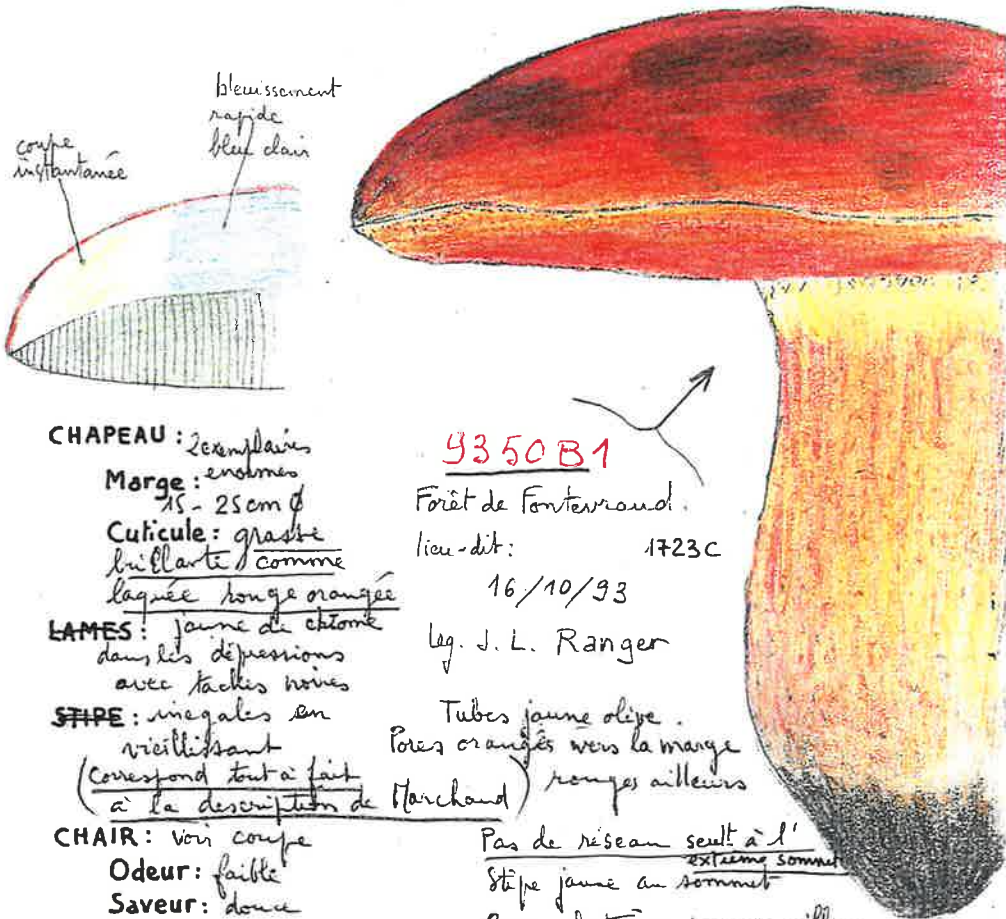 coupe
instantanée
bleuissement
rapide
bleu clair
CHAPEAU : 2 exemplaires
Marge : enormes
15 - 25 cm ϕ
Cuticule : grasse
brillante comme
laquée rouge orangée
LAMES : jaune de chrome
dans les dépressions
avec taches noires
STIPE : inegales en
vieillissant
(correspond tout à fait
à la description de Marchand)
CHAIR : voir coupe
Odeur : faible
Saveur : douce
9350B1
Forêt de Fontevraud.
lieu-dit : 1723C
16/10/93
Leg. J. L. Ranger
Tubes jaune olive.
Pores orangés vers la marge
rouges ailleurs
Pas de réseau seult à l'
extrême sommet
Stipe jaune au sommet